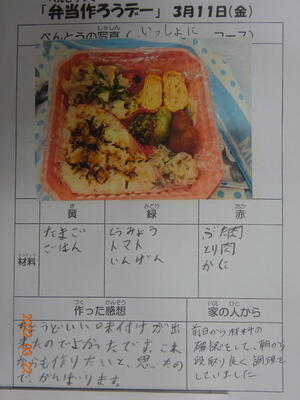 「弁当作ろうデー」 3月11日(金)
べんとうの写真( いっしょに コース)
しゃしん
き みどり あか
黄 緑 赤
材料
ざいりょう
たまご
ごはん
とうみょう
トマト
いんげん
ぶた肉
とり肉
かに
つく かんそう
作った感想
いえ ひと
家の人から
ちょうどいい味付けが出
来たのでよかったです。これ
からも作りたいと、思ったの
で、がんばります。
前日から材料の
確認をして、朝から
段取り良く調理を
していました